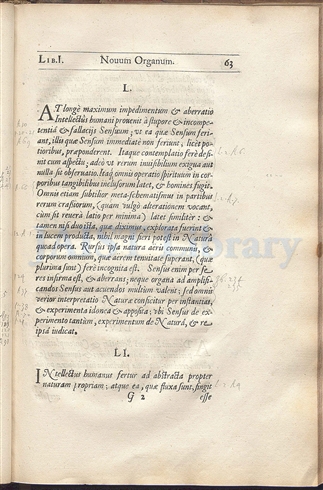 LIB. I. Novum Organum. 63
L.
AT longè maximum impedimentum & aberratio
Intellectûs humani provenit à stupore & incompe-
tentiâ & fallacijs Sensuum; ut ea quæ Sensum feri-
ant, illis quæ Sensum immediatè non feriunt, licèt po-
tioribus, præponderent. Itaque contemplatio ferè desi-
nit cum aspectu; adeò ut rerum invisibilium exigua aut
nulla sit observatio. Itaq; omnis operatio spirituum in cor-
poribus tangibilibus inclusorum latet, & homines fugit.
Omnis etiam subtilior meta-schematismus in partibus
rerum crassiorum, (quem vulgò alterationem vocant,
cùm sit reverà latio per minima) latet similitèr: &
tamen nisi duo ista, quæ diximus, explorata fuerint &
in lucem producta, nihil magni fieri potest in Naturâ
quoad opera. Rursùs ipsa natura aeris communis, &
corporum omnium, quæ aerem tenuitate superant, (quæ
plurima sunt) ferè incognita est. Sensus enim per se
res infirma est, & aberrans; neque organa ad amplifi-
candos Sensus aut acuendos multùm valent; sed omnis
verior interpretatio Naturæ conficitur per instantias,
& experimenta idonea & apposita; ubi Sensus de ex-
perimento tantùm, experimentum de Naturâ, & re
ipsâ iudicat.
LI.
INtellectus humanus fertur ad abstracta propter
naturam propriam; atque ea, quæ fluxa sunt, fingit
G 2 esse